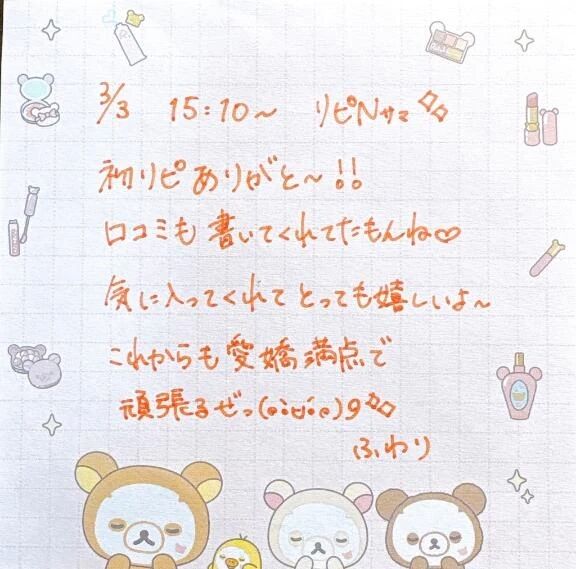 3/3 15:10～ リピNサマ
初リピありがと～!!
口コミも書いてくれてたもんね♡
気に入ってくれてとっても嬉しいよ～
これからも愛嬌満点で
頑張るぜっ(๑•̀ㅂ•́๑)9
ふわり